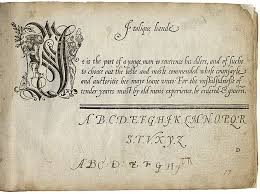 Italique hande
It is the part of a yonge man to reverence his elders, and of suche
to choose out the beste and moste commended whose counsayle
and auctoritie hee maye leane unto: For the unskilfulnesse of
tender yeares must by old mens experience, be ordered & governed.
A B C D E F G H I K L M N O P Q R
S T V X Y Z
A B C D E F G H
D